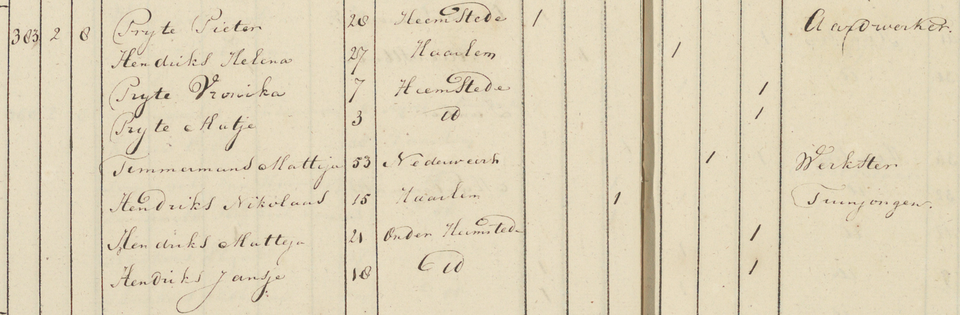 383 2 8 Pryte Pieter 28 Heemstede 1 Aardwerker.
Hendriks Helena 27 Haarlem 1
Pryte Vronika 7 Heemstede 1
Pryte Matje 3 id 1
Temmermans Mattija 53 Nederweert 1 Werkster
Hendriks Nikolaas 15 Haarlem 1 Tuinjongen.
Hendriks Matteja 21 Onder Heemstede 1
Hendriks Jansje 18 id 1